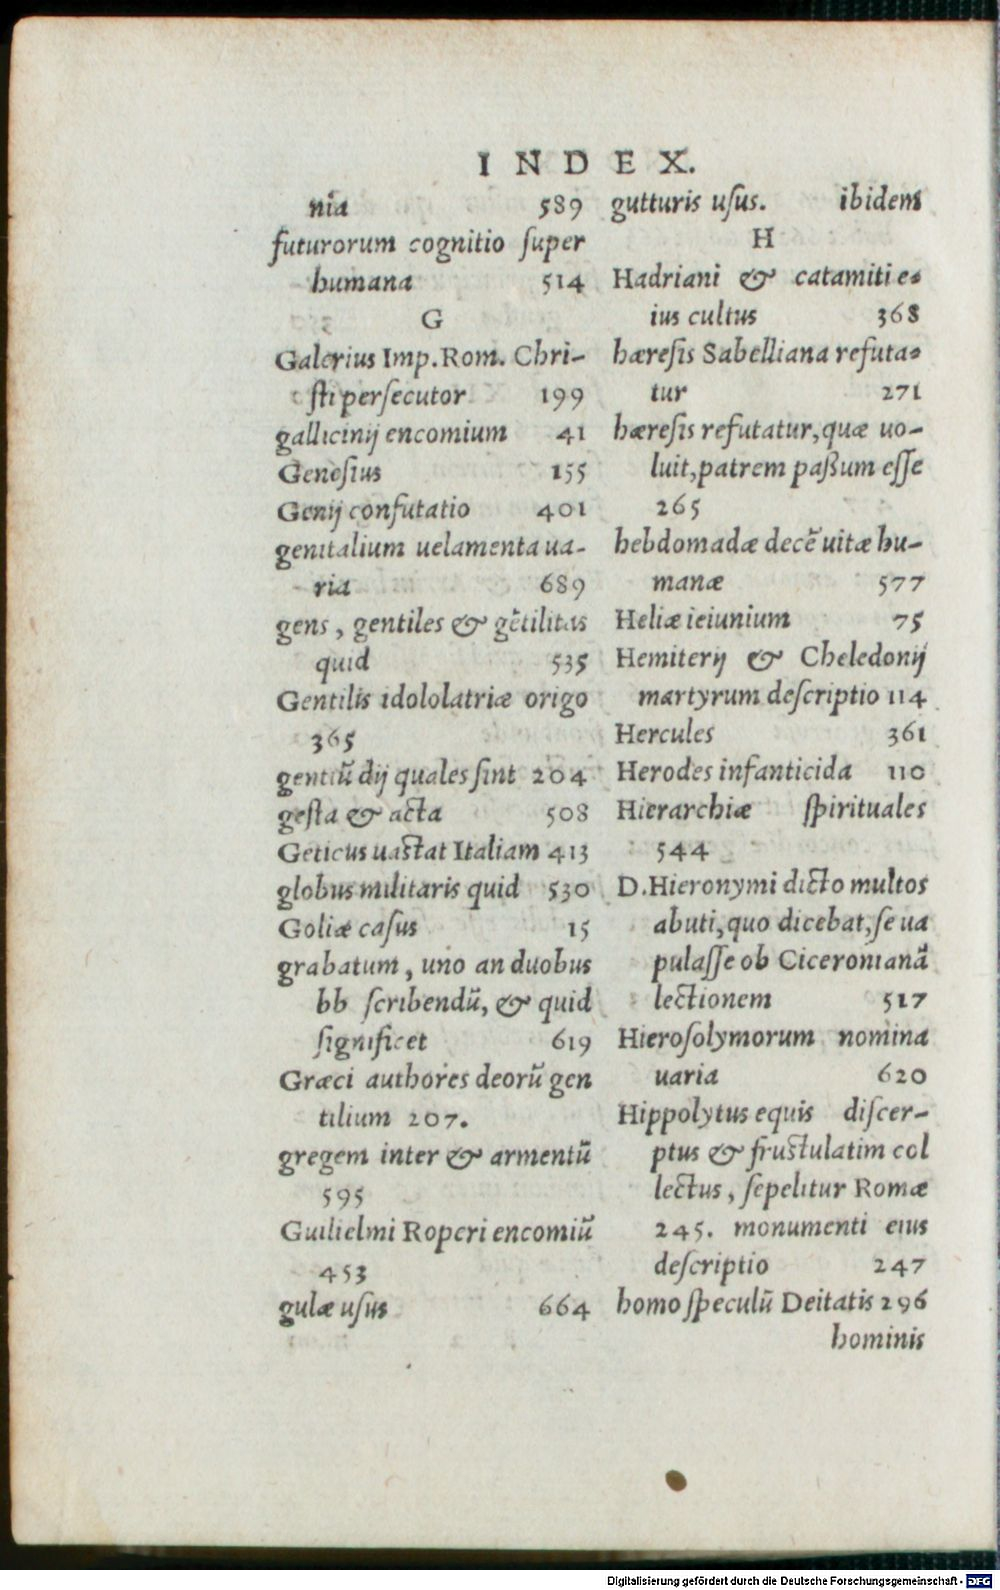 INDEX.
nia 589
futurorum cognitio ſuper
humana 514
G
Galerius Imp. Rom. Chri-
ſti perſecutor 199
gallicinij encomium 41
Geneſius 155
Genij confutatio 401
genitalium uelamenta ua-
ria 689
gens, gentiles & gẽtilitas
quid 535
Gentilis idololatriæ origo
365
gentiũ dij quales ſint 204
geſta & acta 508
Geticus uaſtat Italiam 413
globus militaris quid 530
Goliæ caſus 15
grabatum, uno an duobus
bb ſcribendũ, & quid
ſignificet 619
Græci authores deorũ gen
tilium 207.
gregem inter & armentũ
595
Guilielmi Roperi encomiũ
453
gulæ uſus 664
gutturis uſus. ibidem
H
Hadriani & catamiti e-
ius cultus 368
hæreſis Sabelliana refuta-
tur 271
hæreſis refutatur, quæ uo-
luit, patrem paßum eſſe
265
hebdomadæ decẽ uitæ hu-
manæ 577
Heliæ ieiunium 75
Hemiterij & Cheledonij
martyrum deſcriptio 114
Hercules 361
Herodes infanticida 110
Hierarchiæ ſpirituales
544
D. Hieronymi dicto multos
abuti, quo dicebat, ſe ua
pulaſſe ob Ciceronianã
lectionem 517
Hieroſolymorum nomina
uaria 620
Hippolytus equis diſcer-
ptus & fruſtulatim col
lectus, ſepelitur Romæ
245. monumenti eius
deſcriptio 247
homo ſpeculũ Deitatis 296
hominis
Digitalisierung gefördert durch die Deutsche Forschungsgemeinschaft - DFG